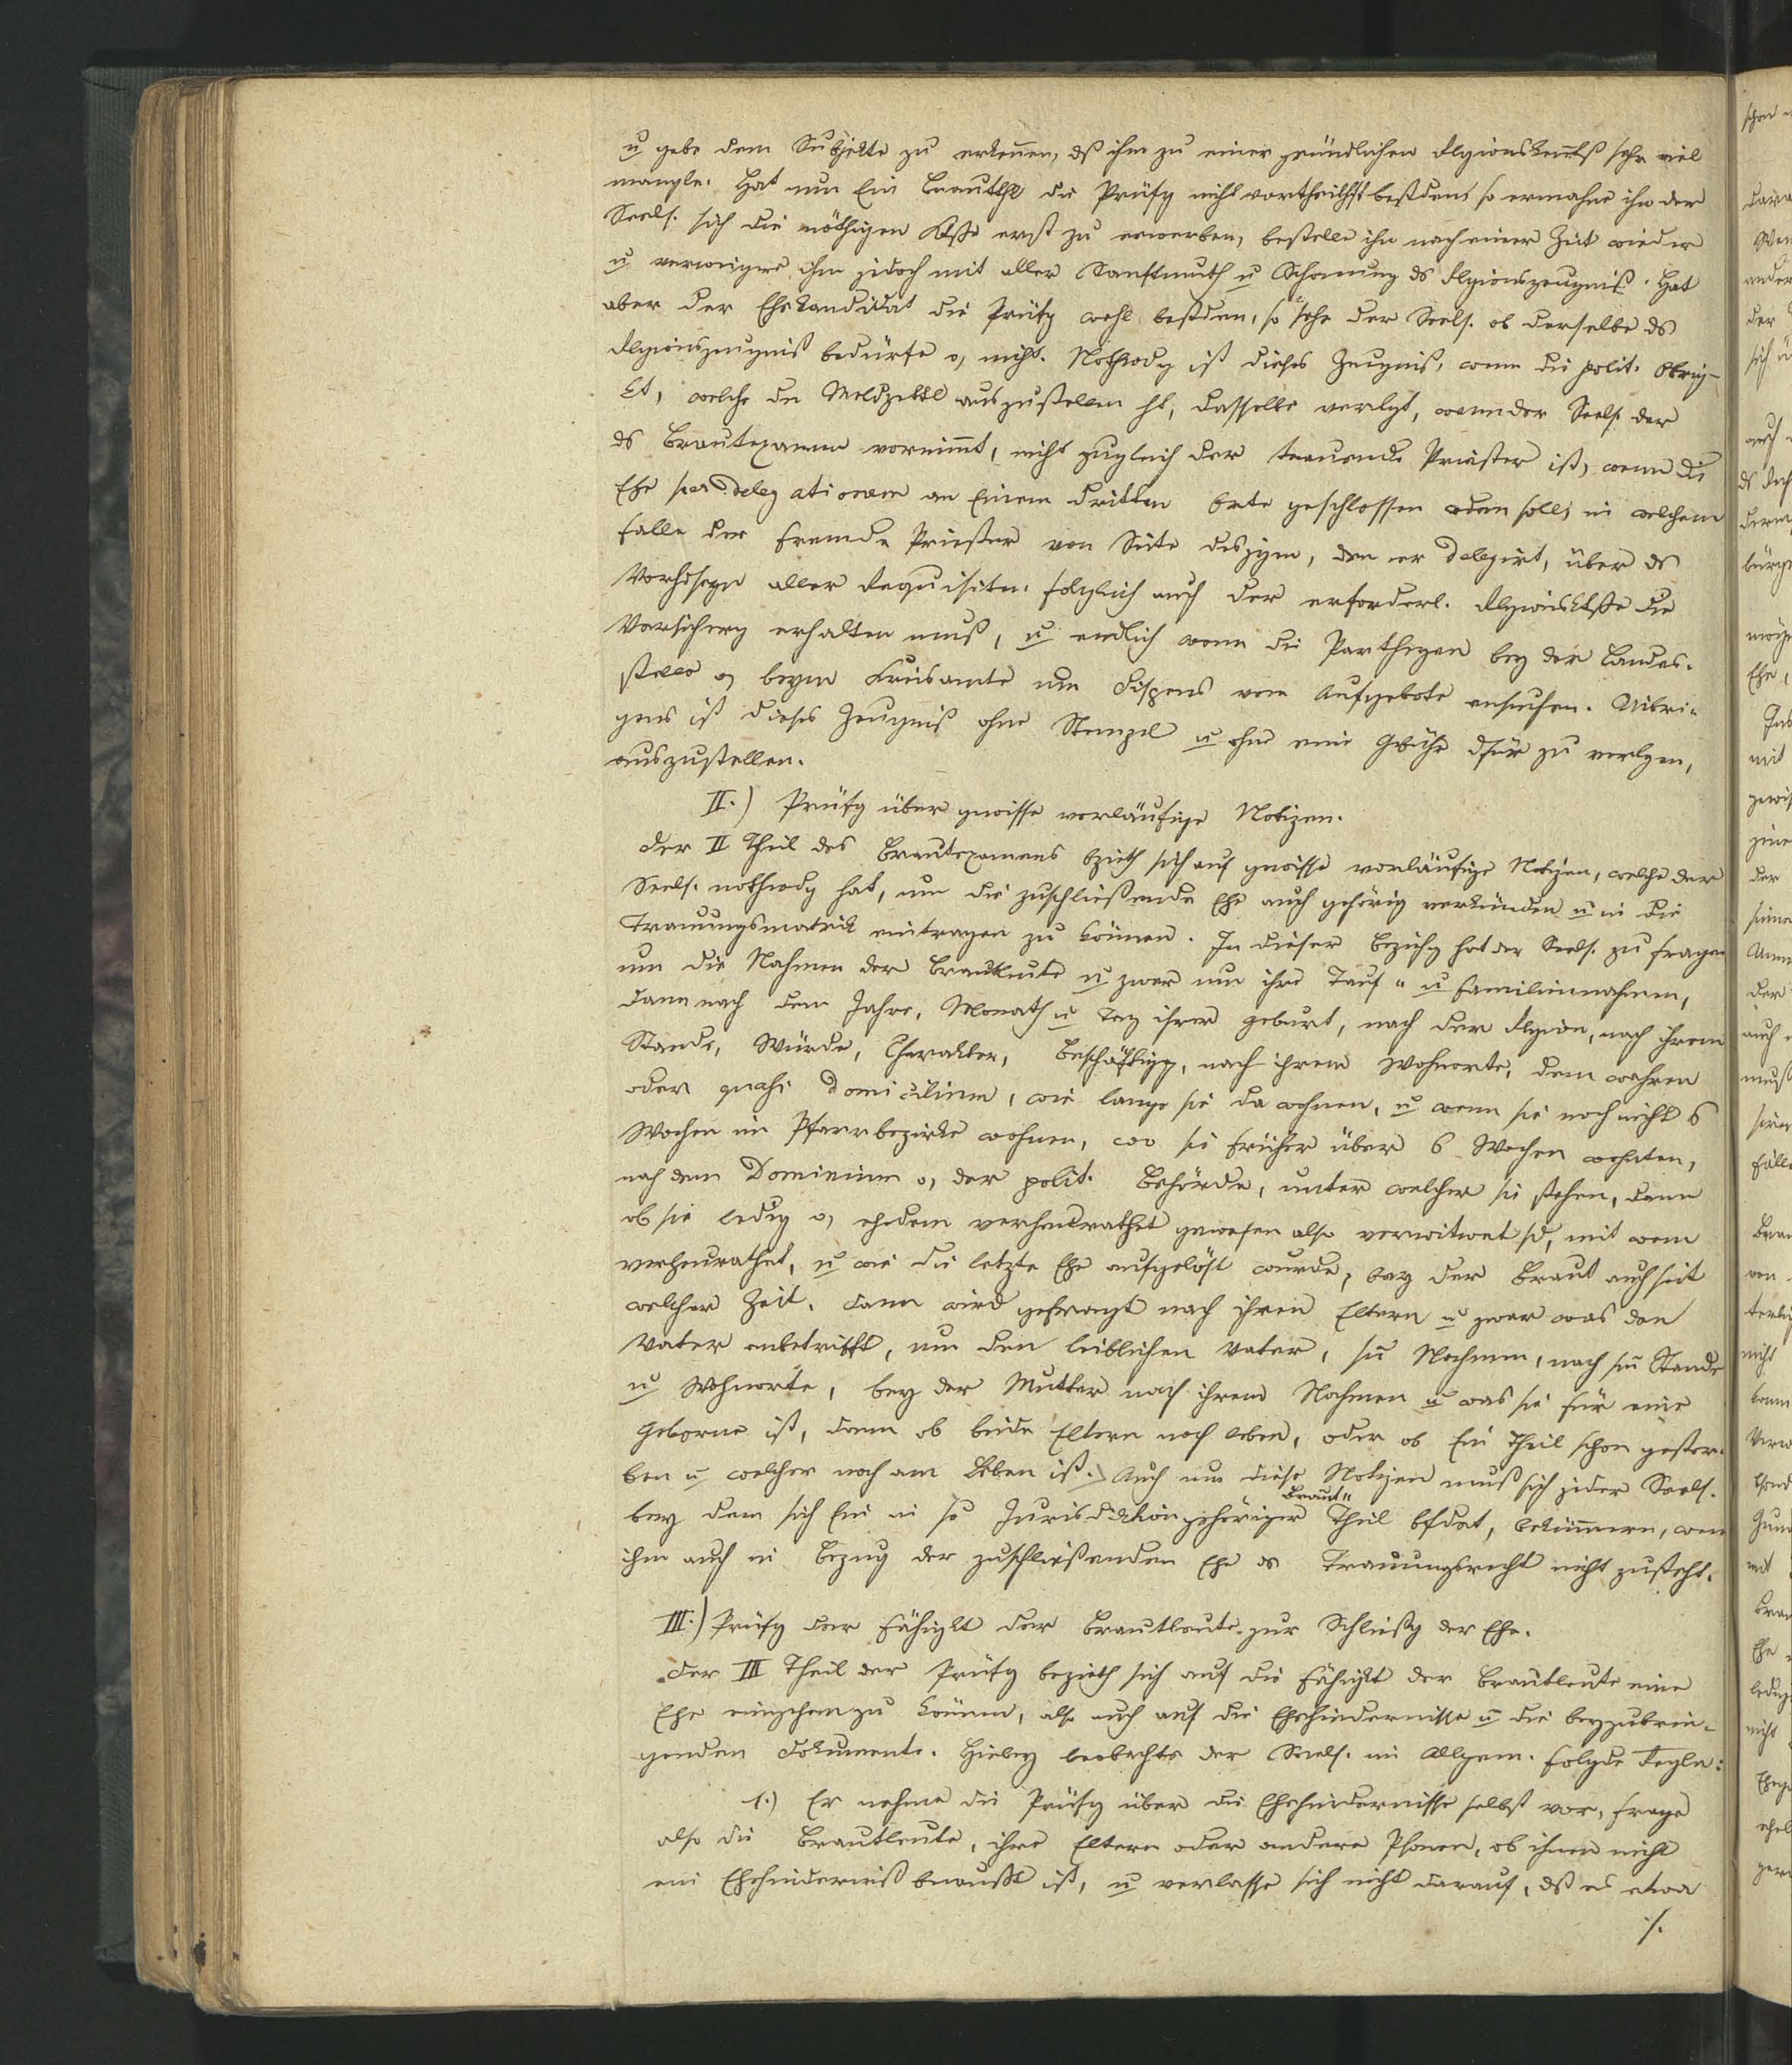 u gebe dem Subjekte zu erkenen, dß ihm zu einer gründlichen Rlgionskentß sehr viel
mangle. Hat nun Ein Brautthl die Prüfg nicht vortheilhft bestden, so ermahne ihn der
Seels. sich die nöthigen Ktße erst zu erwerben, bestelle ihn nach einer Zeit wieder
u verweigere ihm jedoch mit aller Sanftmuth u Schonung ds Rlgionszeugniß. Hat
aber der Ehekandidat die Prüfg wohl bestden, so sehe der Seels. ob derselbe ds
Rlgionszeugniß bedürfe o, nicht. Nothwdg ist dieses Zeugniß, wenn die polit. Obrig-
kt, welche den Meldzettl auszustellen ht, dasselbe verlgt, wenn der Seels. der
ds Brautexamen vornimt, nicht zugleich der trauende Priester ist, wenn die
Ehe per Delegationem an Einem dritten Orte geschlossen wden soll, in welchem
Falle der fremde Priester von Seite desjgen, den er delegirt, über ds
Vorhdseyn aller Requisiten, folglich auch der erforderl. Rlgionsktße die
Versicherg erhalten muß, u endlich wenn die Partheyen bey der Landes-
stelle o, beym Kreisamte um Dispens vom Aufgebote ansuchen. Uibri-
gens ist dieses Zeugniß ohne Stempel u ohne eine Gebühr dfür zu verlgen,
auszustellen.
II.) Prüfg über gwisse vorläufige Notizen.
Der II Theil des Brautexamens bzieht sich auf gwisse vorläufige Notizen, welche der
Seels. nothwdg hat, um die zuschließende Ehe auch gehörig verkünden u in die
Trauungsmatrik eintragen zu können. In dieser Beziehg hat der Seels. zu fragen
um die Nahmen der Brautleute u zwar um ihre Tauf- u Familiennahmen,
dann nach dem Jahre, Monath u Tag ihrer Geburt, nach der Rlgion, nach ihrem
Stande, Würde, Charakter, Beschäftigg, nach ihrem Wohnorte, dem wahren
oder quasi Domicilium, wie lange sie da wohnen, u wenn sie noch nicht 6
Wochen im Pfarrbezirke wohnen, wo sie früher über 6 Wochen wohnten,
nach dem Dominium o, der polit. Behörde, unter welcher sie stehen, dann
ob sie ledig o, ehedem verheurathet gewesen also verwitwet sd, mit wem
verheurathet, u wie die letzte Ehe aufgelöst wurde, bey der Braut auch seit
welcher Zeit. Dann wird gefragt nach ihren Eltern u zwar was den
Vater anbetrifft, um den leiblichen Vater, sn Nahmen, nach sn Stande
u Wohnorte, bey der Mutter nach ihrem Nahmen u was sie für eine
Geborne ist, dann ob beide Eltern noch leben, oder ob Ein Theil schon gestor-
ben u welcher noch am Leben ist. Auch um diese Notizen muß sich jeder Seels.
bey dem sich Ein in se Jurisdiktion gehöriger Braut- Theil bfdet, bekümmern, wenn
ihm auch in Bezug der zuschließenden Ehe ds Trauungsrecht nicht zusteht.
III.) Prüfg der Fähigkt der Brautleute zur Schließg der Ehe.
Der III Theil der Prüfg bezieht sich auf die Fähigkt der Brautleute eine
Ehe eingehen zu können, also auch auf die Ehehindernisse u die beyzubrin-
genden Dokumente. Hiebey beobachte der Seels. im Allgem. folgde Regln:
1.) Er nehme die Prüfg über die Ehehindernisse selbst vor, frage
also die Brautleute, ihre Eltern oder andere Psonen, ob ihnen nicht
ein Ehehinderniß bewußt ist, u verlasse sich nicht darauf, dß es etwa
./.